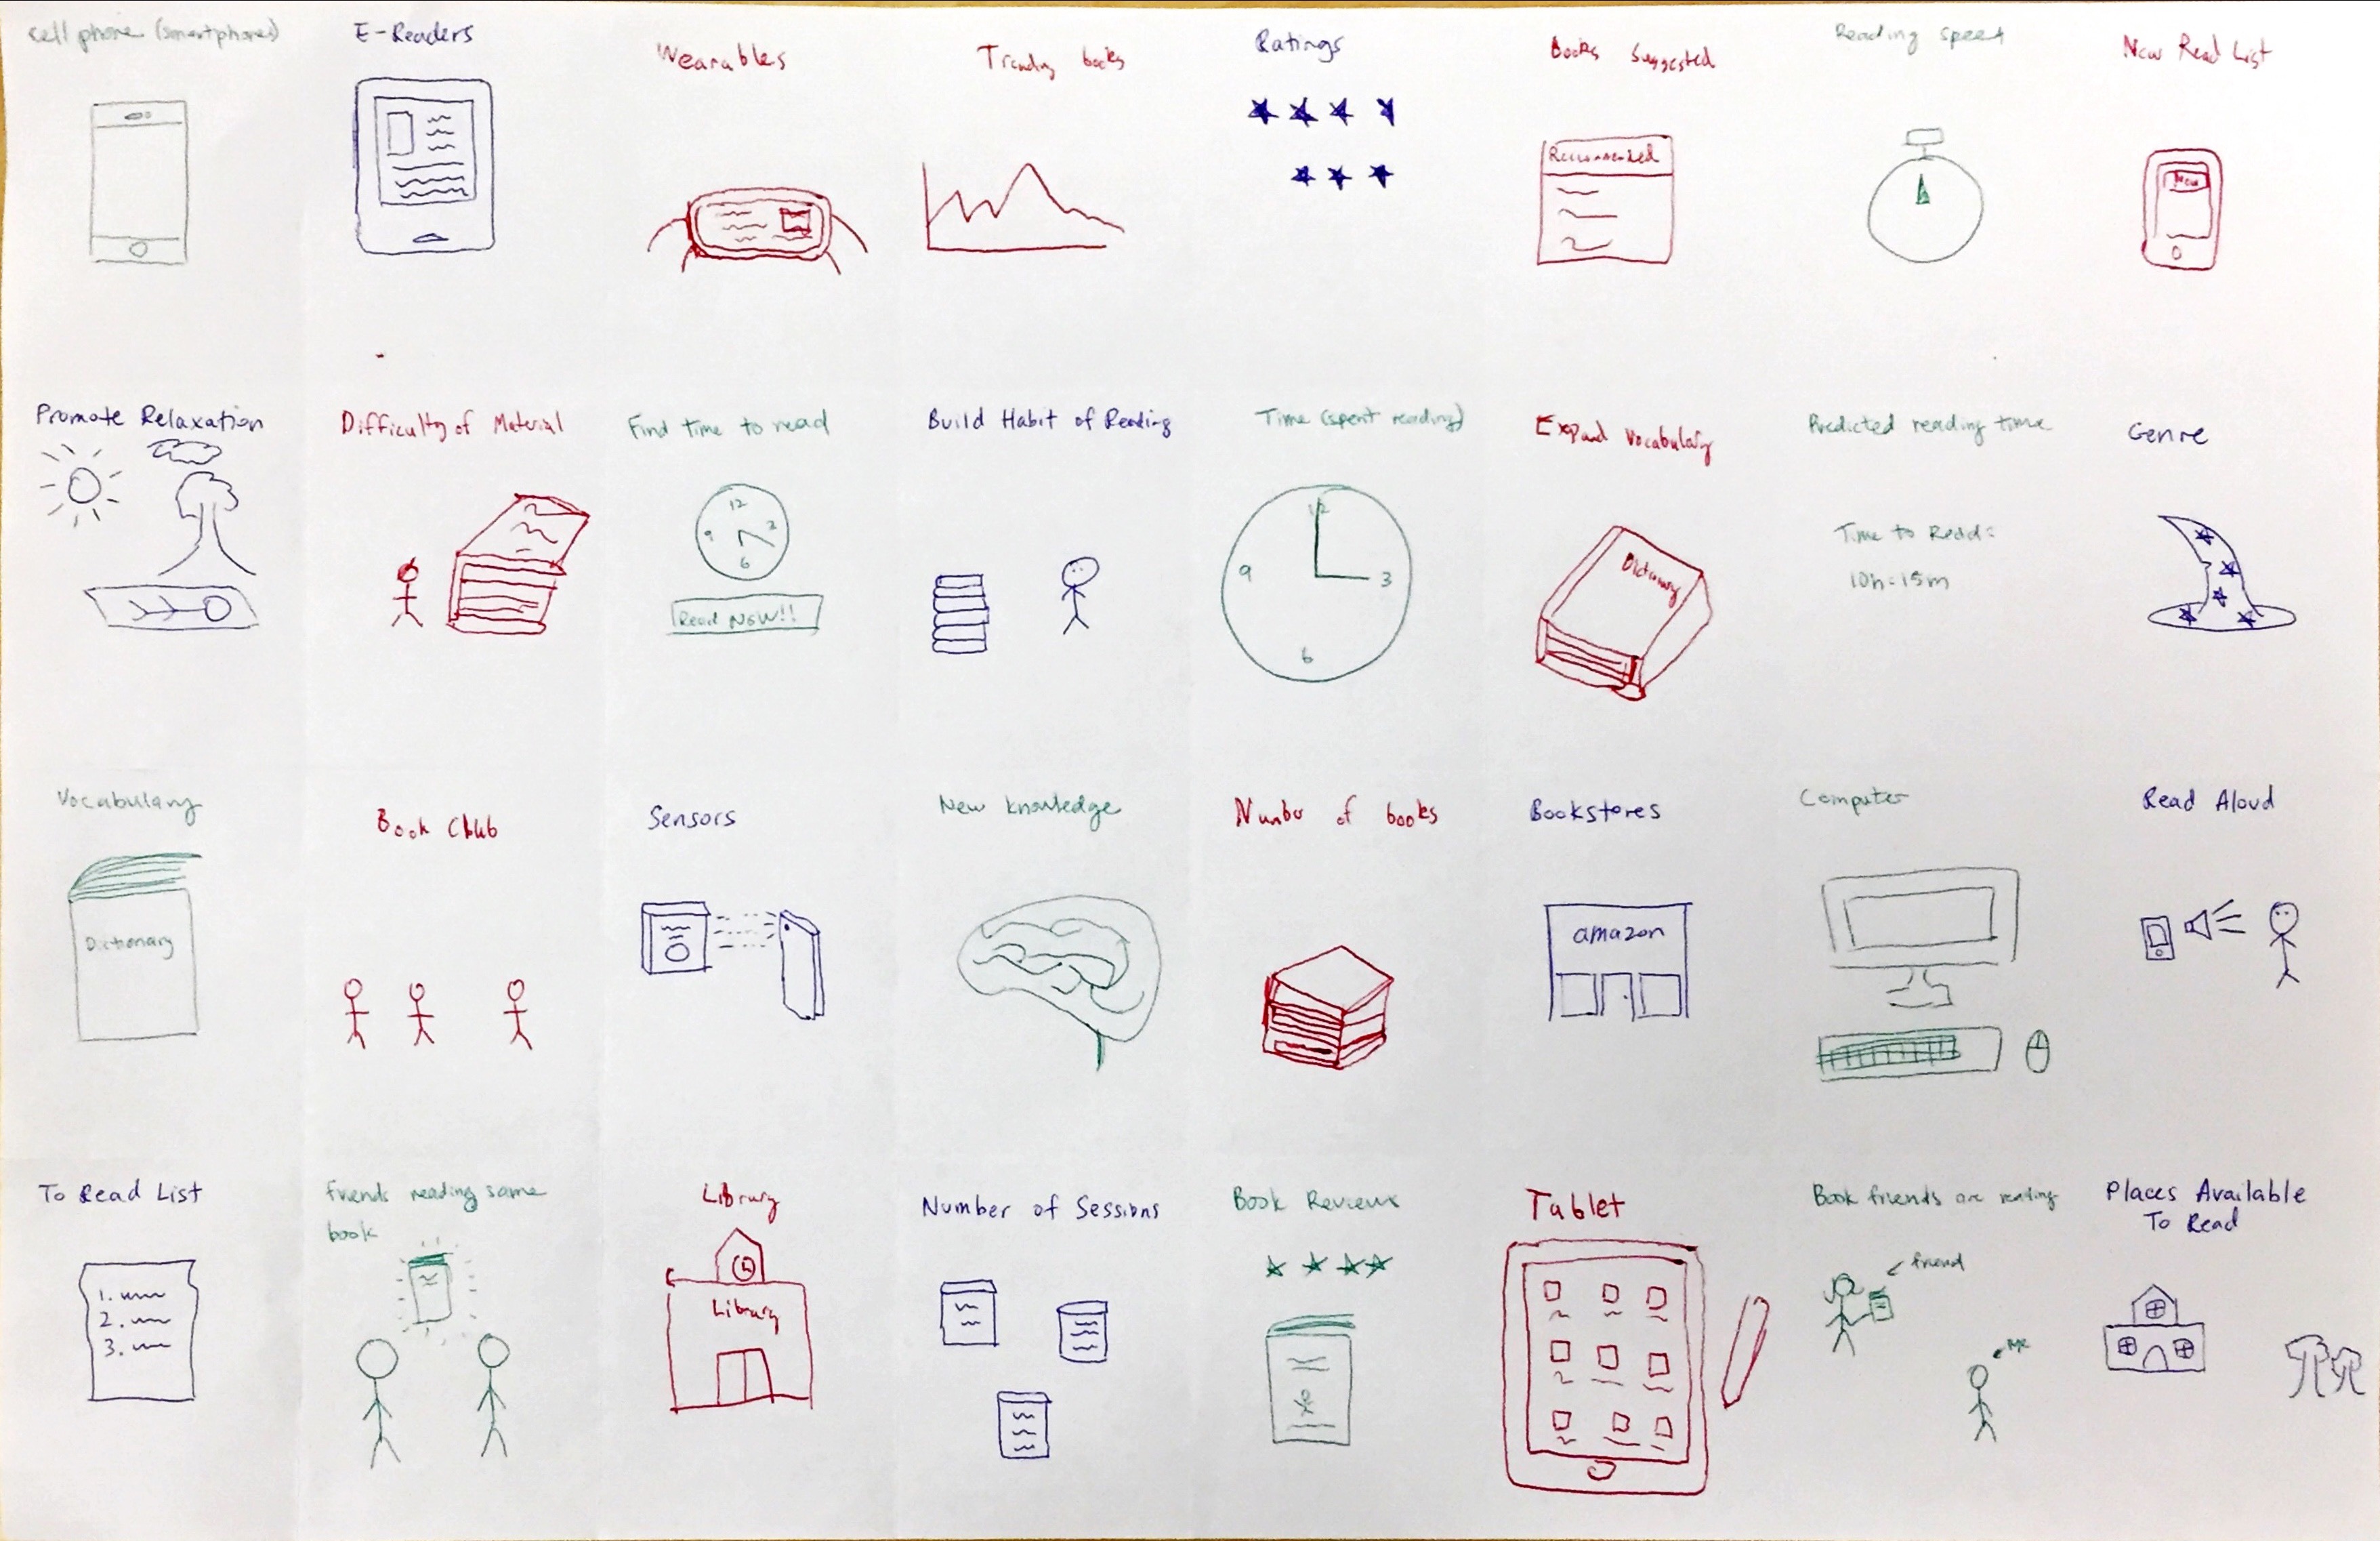 Cell phone (smartphones)
E-Readers
Wearables
Trending books
Ratings
Books Suggested
Recommended
Reading speed
New Read List
New
Promote Relaxation
Difficulty of Material
Find time to read
12
9 3
6
Read NOW!!
Build Habit of Reading
Time (spent reading)
12
9 3
6
Expand Vocabulary
Dictionary
Predicted reading time
Time to Read:
10h:15m
Genre
Vocabulary
Dictionary
Book Club
Sensors
New knowledge
Number of books
Bookstores
amazon
Computer
Read Aloud
To Read List
1.
2.
3.
Friends reading same
book
Library
Library
Number of Sessions
Book Reviews
Tablet
Book friends are reading
friend
me
Places Available
To Read